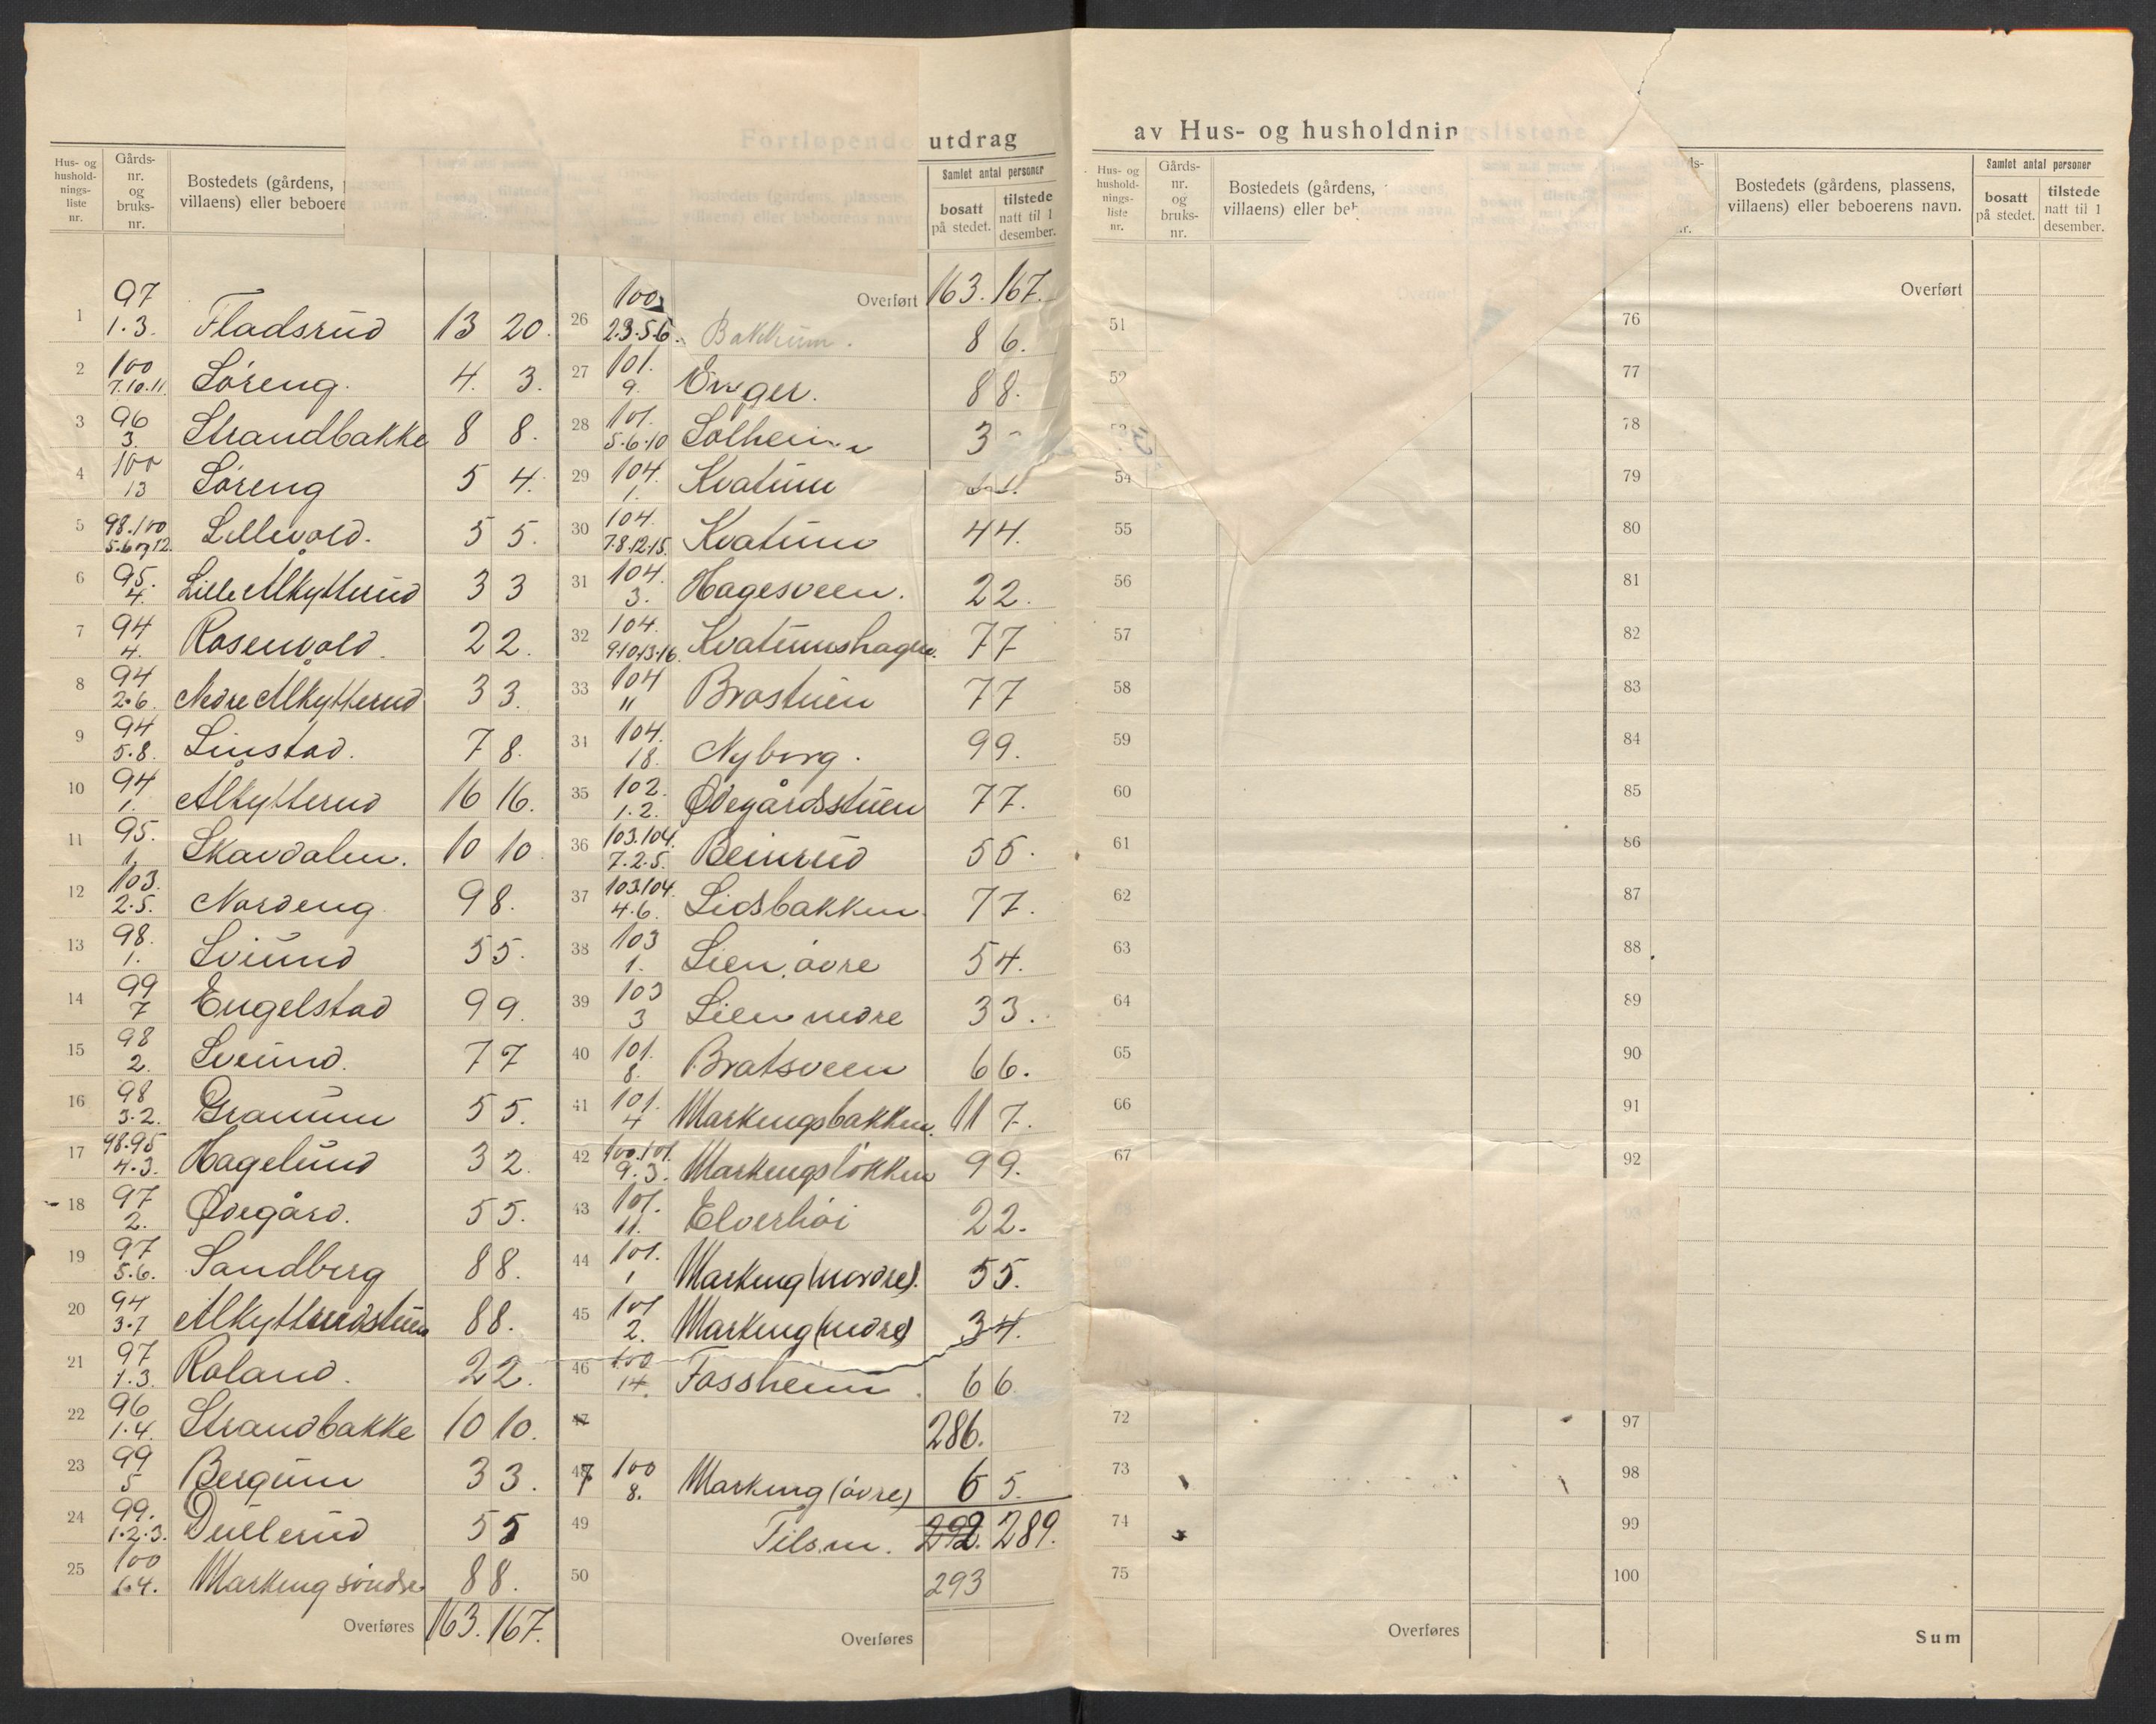 Fortløpende utdrag av Hus- og husholdningslistene
Hus- og husholdnings-liste nr. Gårds-nr. og bruks-nr. Bostedets (gårdens, villaens) eller beboere
Bostedets (gårdens, plassens, villaens) eller beboerens navn
Samlet antal personer
bosatt på stedet. tilstede natt til 1 desember.
1 97 1.3. Fladsrud 13 20.
2 100 7.10.11. Søreng. 4. 3.
3 96 3. Strandbakke 8 8.
4 100 13 Søreng 5 4.
5 98.100 5.6 og 12. Lillevold. 5 5.
6 95. 4. Lille Ålkytterud 3 3
7 94 4. Rosenvold. 2 2.
8 94 2.6. Nedre Ålkytterud 3 3.
9 94 5.8. Linstad. 7 8.
10 94 1. Ålkytterud 16 16.
11 95. 1. Skavdalen. 10 10.
12 103. 2.5. Nordeng 9 8.
13 98. 1. Sviund 5 5.
14 99 7 Engelstad 9 9.
15 98 2. Sviund. 7 7
16 98 3.2. Granum 5 5.
17 98.95 4.3. Hagelund 3 2.
18 97 2. Ødegård. 5 5.
19 97 5.6. Sandberg 8 8.
20 94 3.7 Ålkytterudstuen 8 8.
21 97 1.3. Roland. 2 2.
22 96 1.4. Strandbakke 10 10.
23 99 5 Bergum 3 3.
24 99. 1.2.3. Dullerud 5 5
25 100 1.4. Markeng søndre 8 8.
Overføres 163. 167.
Overført 163. 167.
26 100 2.3.5.6. Bakkum. 8 6.
27 101. 9. Enger. 8 8.
28 101. 5.6.10 Solheim 3 -
29 104. 1. Kvatum
30 104. 7.8.12.15. Kvatum 4 4.
31 104. 3. Hagesveen. 2 2.
32 104. 9.10.13.16. Kvatumshagen. 7 7
33 104 11 Brostuen 7 7
34 104. 18. Nyborg. 9 9.
35 102. 1.2. Ødegårdsstuen 7 7.
36 103.104. 7.2.5. Beinrud 5 5.
37 103.104. 4.6. Lidsbakken. 7 7.
38 103 1. Lien, øvre 5 4.
39 103 3 Lien nedre 3 3.
40 101. 8. Bratsveen 6 6.
41 101. 4 Markengsbakken. 11 7.
42 100.101. 9.3. Markengsløkken 9 9.
43 101. 11. Elverhøi 2 2.
44 101. 1 Markeng (nordre). 5 5.
45 101 2. Markeng (nedre) 3 4.
46 100 14. Fossheim. 6 6
47 286.
48 7 100 8. Markeng (øvre) 6 5.
49 Tils.m. 292. 289.
50 293
Overføres
Hus- og husholdnings-liste nr. Gårds-nr. og bruks-nr. Bostedets (gårdens, villaens) eller beb
51
52
53
54
55
56
57
58
59
60
61
62
63
64
65
66
67
72
73
74
75
Overføres
Bostedets (gårdens, plassens, villaens) eller beboerens navn.
Samlet antal personer
bosatt på stedet. tilstede natt til 1 desember.
Overført
76
77
78
79
80
81
82
83
84
85
86
87
88
89
90
91
92
93
97
98
99
100
Sum